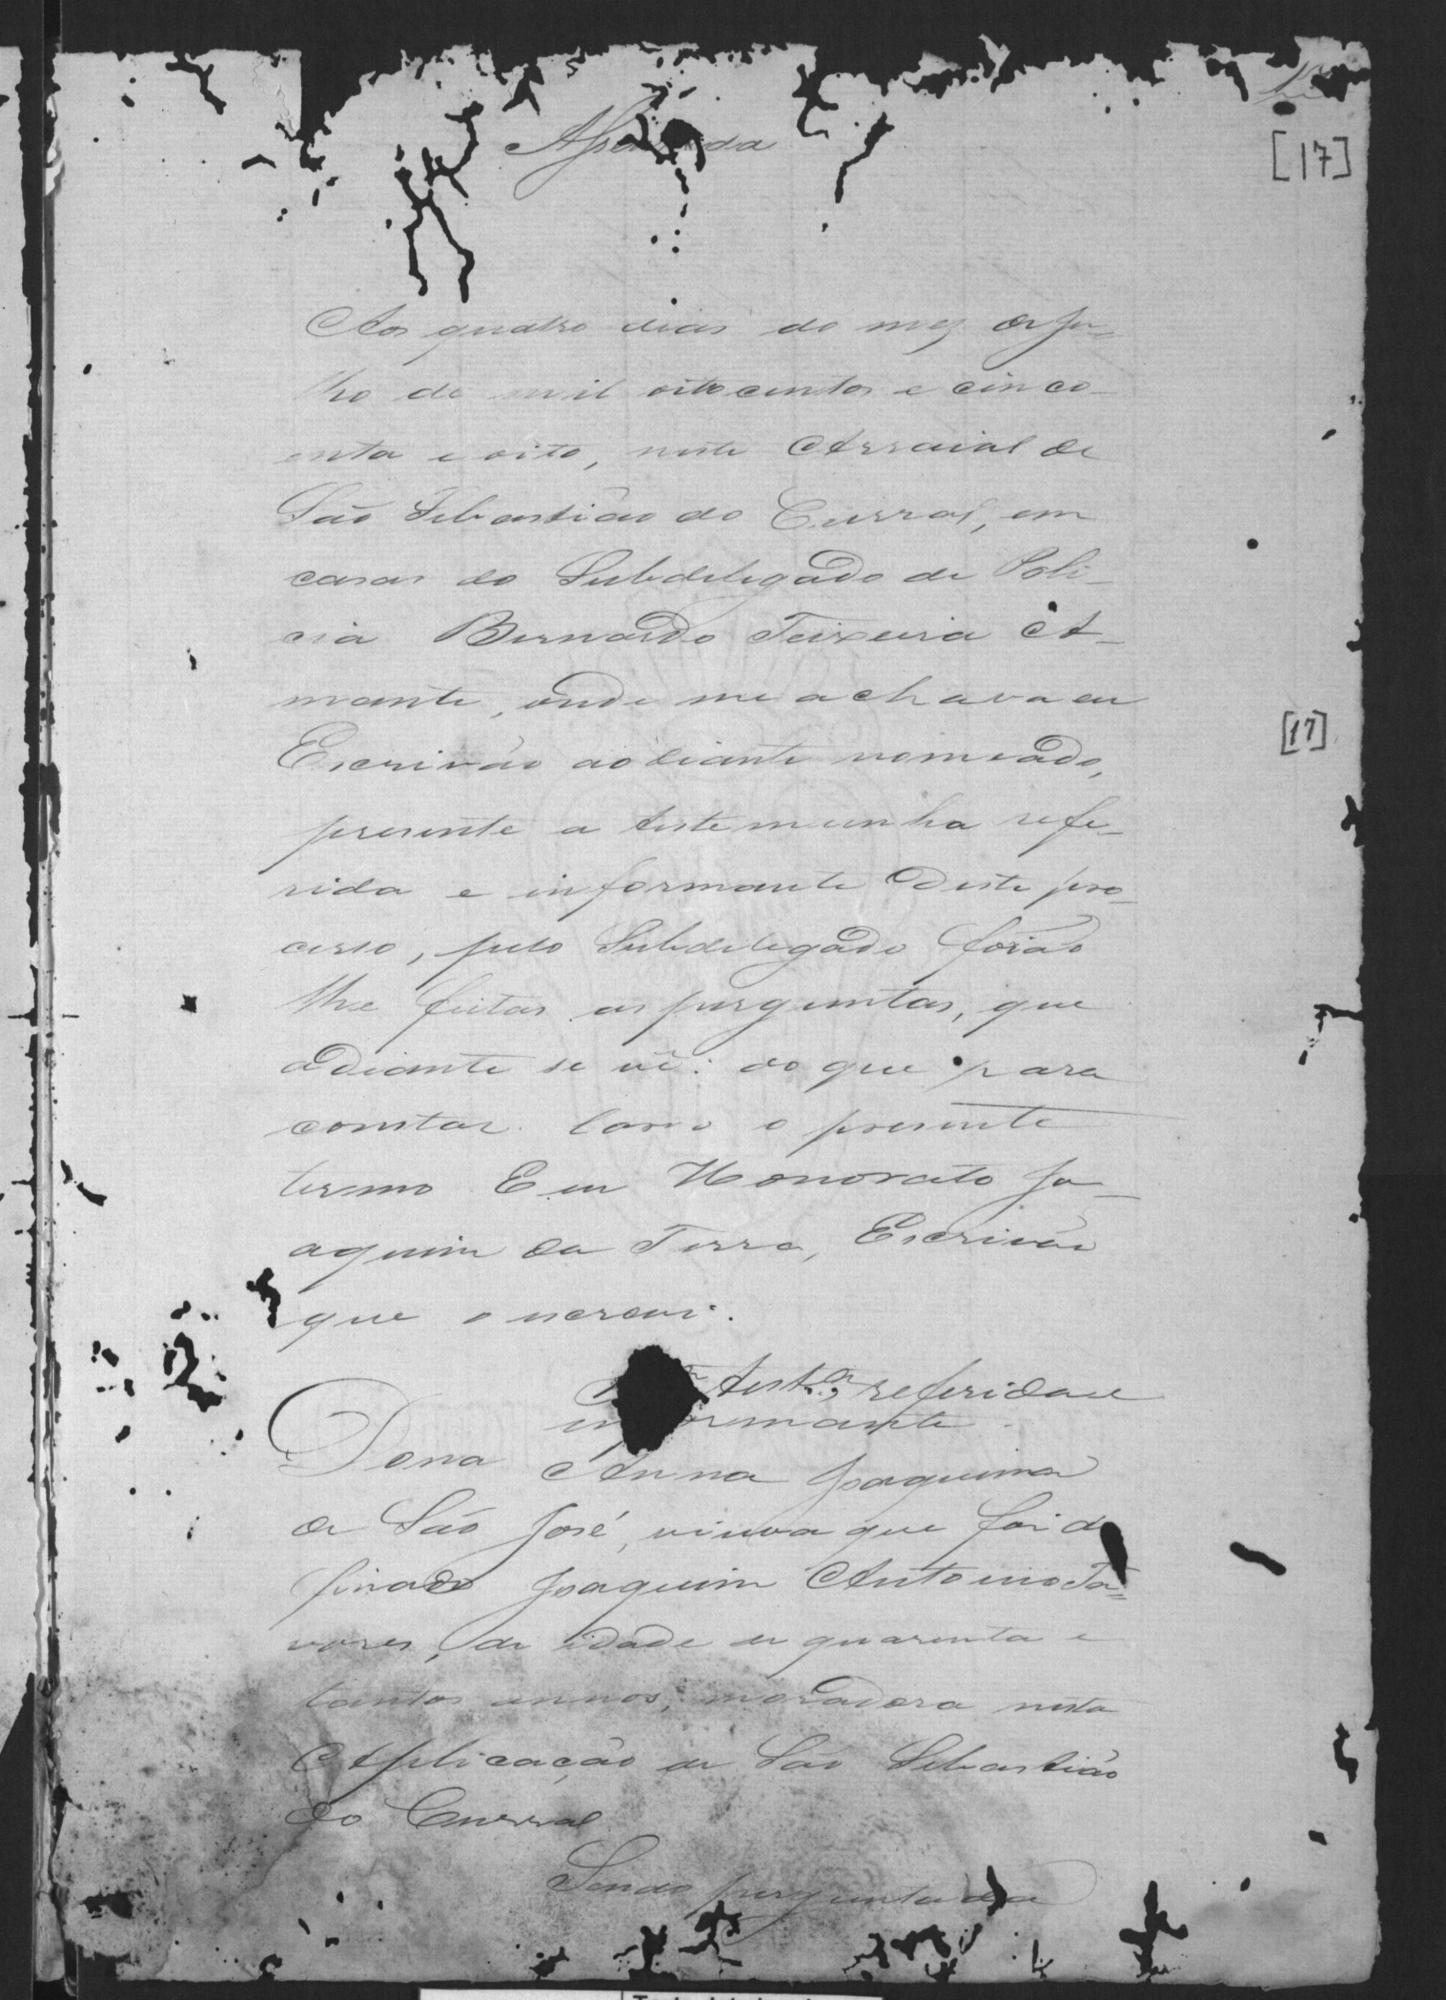 Assentada
[17]
Aos quatro dias do mez de Ju=
lho de mil oitocentos e cinco-
enta e oito, neste Arraial de
São Sebastião do Curral, em
casas do Subdelegado de Poli-
cia Bernardo Teixeira A-
mante, onde me achava eu
Escrivão aodiante nomeado,
[17]
presente a testemunha refe-
rida e informante deste pro-
cesso, pelo Subdelegado forão
lhe feitas as perguntas, que
adiante se vê: do que para
constar lavro o presente
termo Eu Honorato Jo-
aquim da Terra, Escrivão
que o escrevi.
test.ª referida e
informante.
Dona Anna Joaquina
de São José, viuva que foi do
finado Joaquim Antonio Ta=
vares, de idade de quarenta e
tantos annos, moradora nesta
Applicação de São Sebastião
do Curral
Sendo perguntada